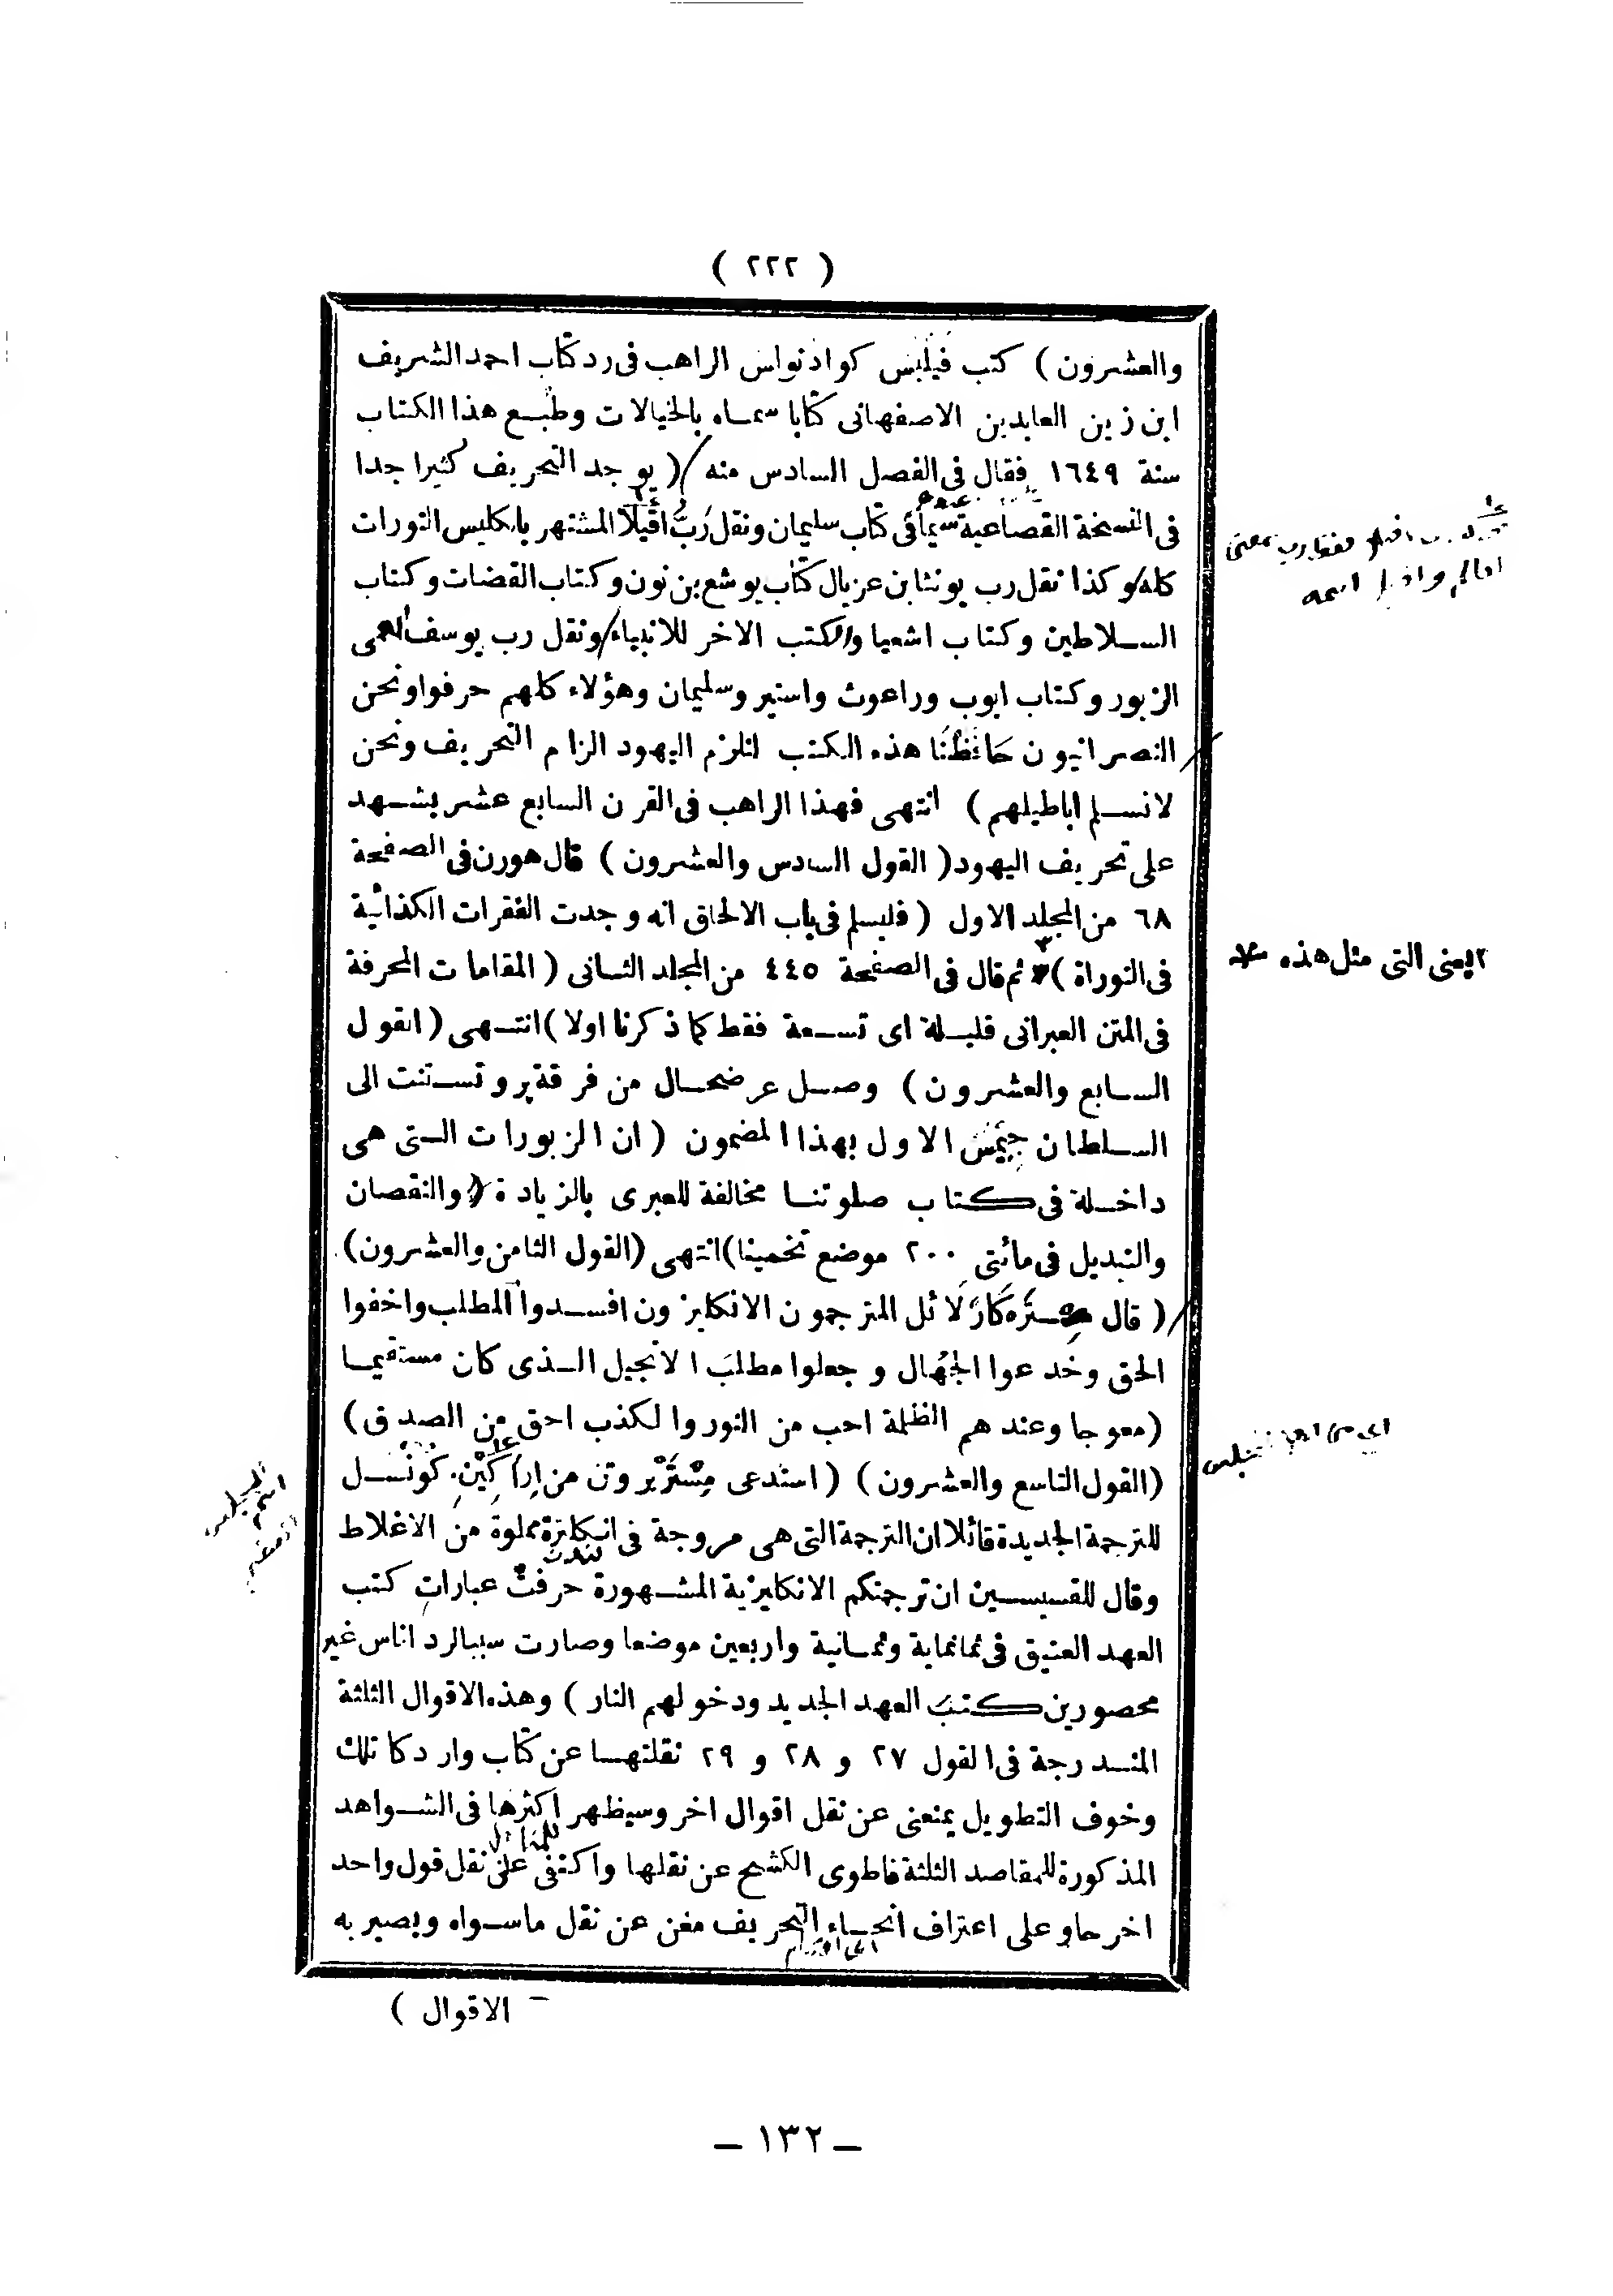 ( ٢٢٢ )
والعشرون ) كتب فيلبس كواذنواس الراهب فى رد كتاب احمد الشريف
ابن زين العابدين الاصفهانى كتابا سماه بالخيالات وطبع هذا الكتاب
سنة ١٦٤٩ فقال فى الفصل السادس منه ( يوجد التحريف كثيرا جدا
فى النسخة القصاعية سيما فى كتاب سليمان ونقل رَبُّ اقيلا المشتهر بانكليس التورات
كله وكذا نقل رب يونثا بن عزيال كتاب يوشع بن نون وكتاب القضات وكتاب
السلاطين وكتاب اشعيا والكتب الاخر للانبياء ونقل رب يوسف اعمى
الزبور وكتاب ايوب وراعوث واستير وسليمان وهؤلاء كلهم حرفوا ونحن
النصرانيون حافظنا هذه الكتب لنلزم اليهود الزام التحريف ونحن
لا نسلم اباطيلهم ) انتهى فهذا الراهب فى القرن السابع عشر يشهد
على تحريف اليهود ( القول السادس والعشرون ) قال هورن فى الصفحة
٦٨ من المجلد الاول ( فليسلم فى باب الالحاق انه وجدت الفقرات الكذائية
فى التوراة ) ثم قال فى الصفحة ٤٤٥ من المجلد الثانى ( المقامات المحرفة
فى المتن العبرانى قليلة اى تسعة فقط كما ذكرنا اولا ) انتهى ( القول
السابع والعشرون ) وصل عرضحال من فرقة پروتستنت الى
السلطان جيمس الاول بهذا المضمون ( ان الزبورات التى هى
داخلة فى كتاب صلوتنا مخالفة للعبرى بالزيادة والنقصان
والتبديل فى مائتى ٢٠٠ موضع تخمينا ) انتهى ( القول الثامن والعشرون )
( قال مستر كارلائل المترجمون الانكليزون افسدوا المطلب واخفوا
الحق وخدعوا الجهال وجعلوا مطلب الانجيل الذى كان مستقيما
( معوجا وعندهم الظلمة احب من النور والكذب احق من الصدق )
( القول التاسع والعشرون ) ( استدعى مستر بروتن من اراكين كونسل
للترجمة الجديدة قائلا ان الترجمة التى هى مروجة فى انكلترة مملوة من الاغلاط
وقال للقسيسين ان ترجمتكم الانكليزية المشهورة حرفت عبارات كتب
العهد العتيق فى ثمانماية وثمانية واربعين موضعا وصارت سببا لرد اناس غير
محصورين كتب العهد الجديد ودخولهم النار ) وهذه الاقوال الثلثة
المندرجة فى القول ٢٧ و ٢٨ و ٢٩ نقلتها عن كتاب وارد كاتلك
وخوف التطويل يمنعنى عن نقل اقوال اخر وسيظهر اكثرها فى الشواهد
المذكورة للمقاصد الثلثة فاطوى الكشح عن نقلها واكتفى على نقل قول واحد
اخر حاو على اعتراف انحاء التحريف مغن عن نقل ما سواه ويصير به
الاقوال )
٢ يعنى التى مثل هذه
ـ ١٣٢ ـ